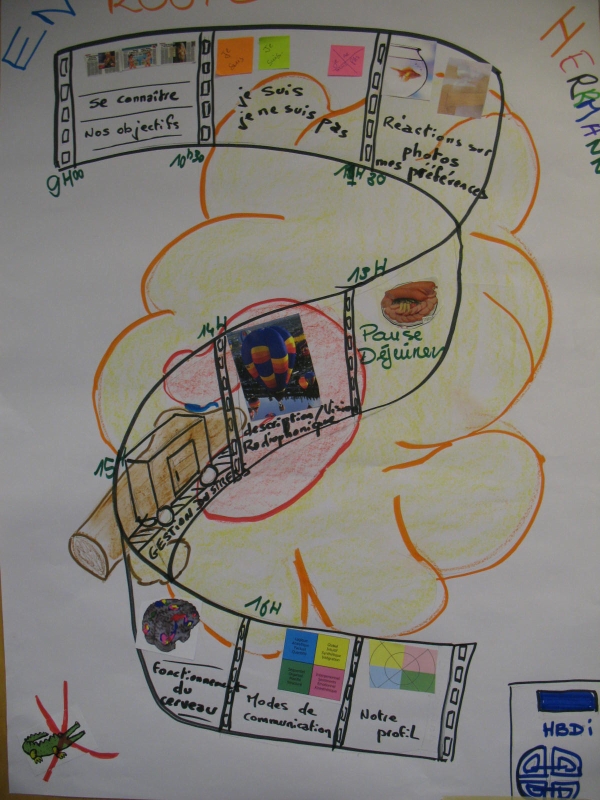 EN ROUTE
HERMANN
Se connaître
Nos objectifs
je suis
je suis
je ne suis pas
Réactions sur
photos
mes préférences
9H00
10h30
11H30
13H
Pause
Déjeuner
14H
description/Vision
Radiophonique
15H
GESTION DU STRESS
16H
Fonctionnement
du
cerveau
Modes de
communication
Notre
profil
HBDi